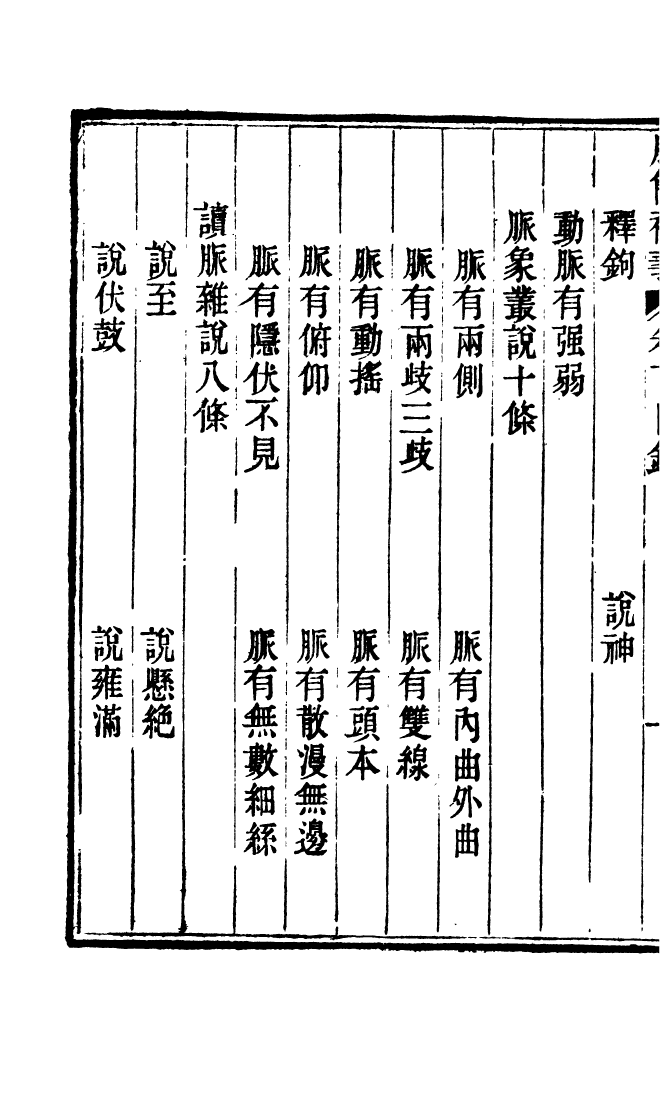 釋鉤　說神
動脈有强弱
脈象叢說十條
脈有兩側　脈有內曲外曲
脈有兩歧三歧　脈有雙線
脈有動搖　脈有頭本
脈有俯仰　脈有散漫無邊
脈有隱伏不見　脈有無數細絲
讀脈雜說八條
說至　說懸絶
說伏鼓　說雍滿